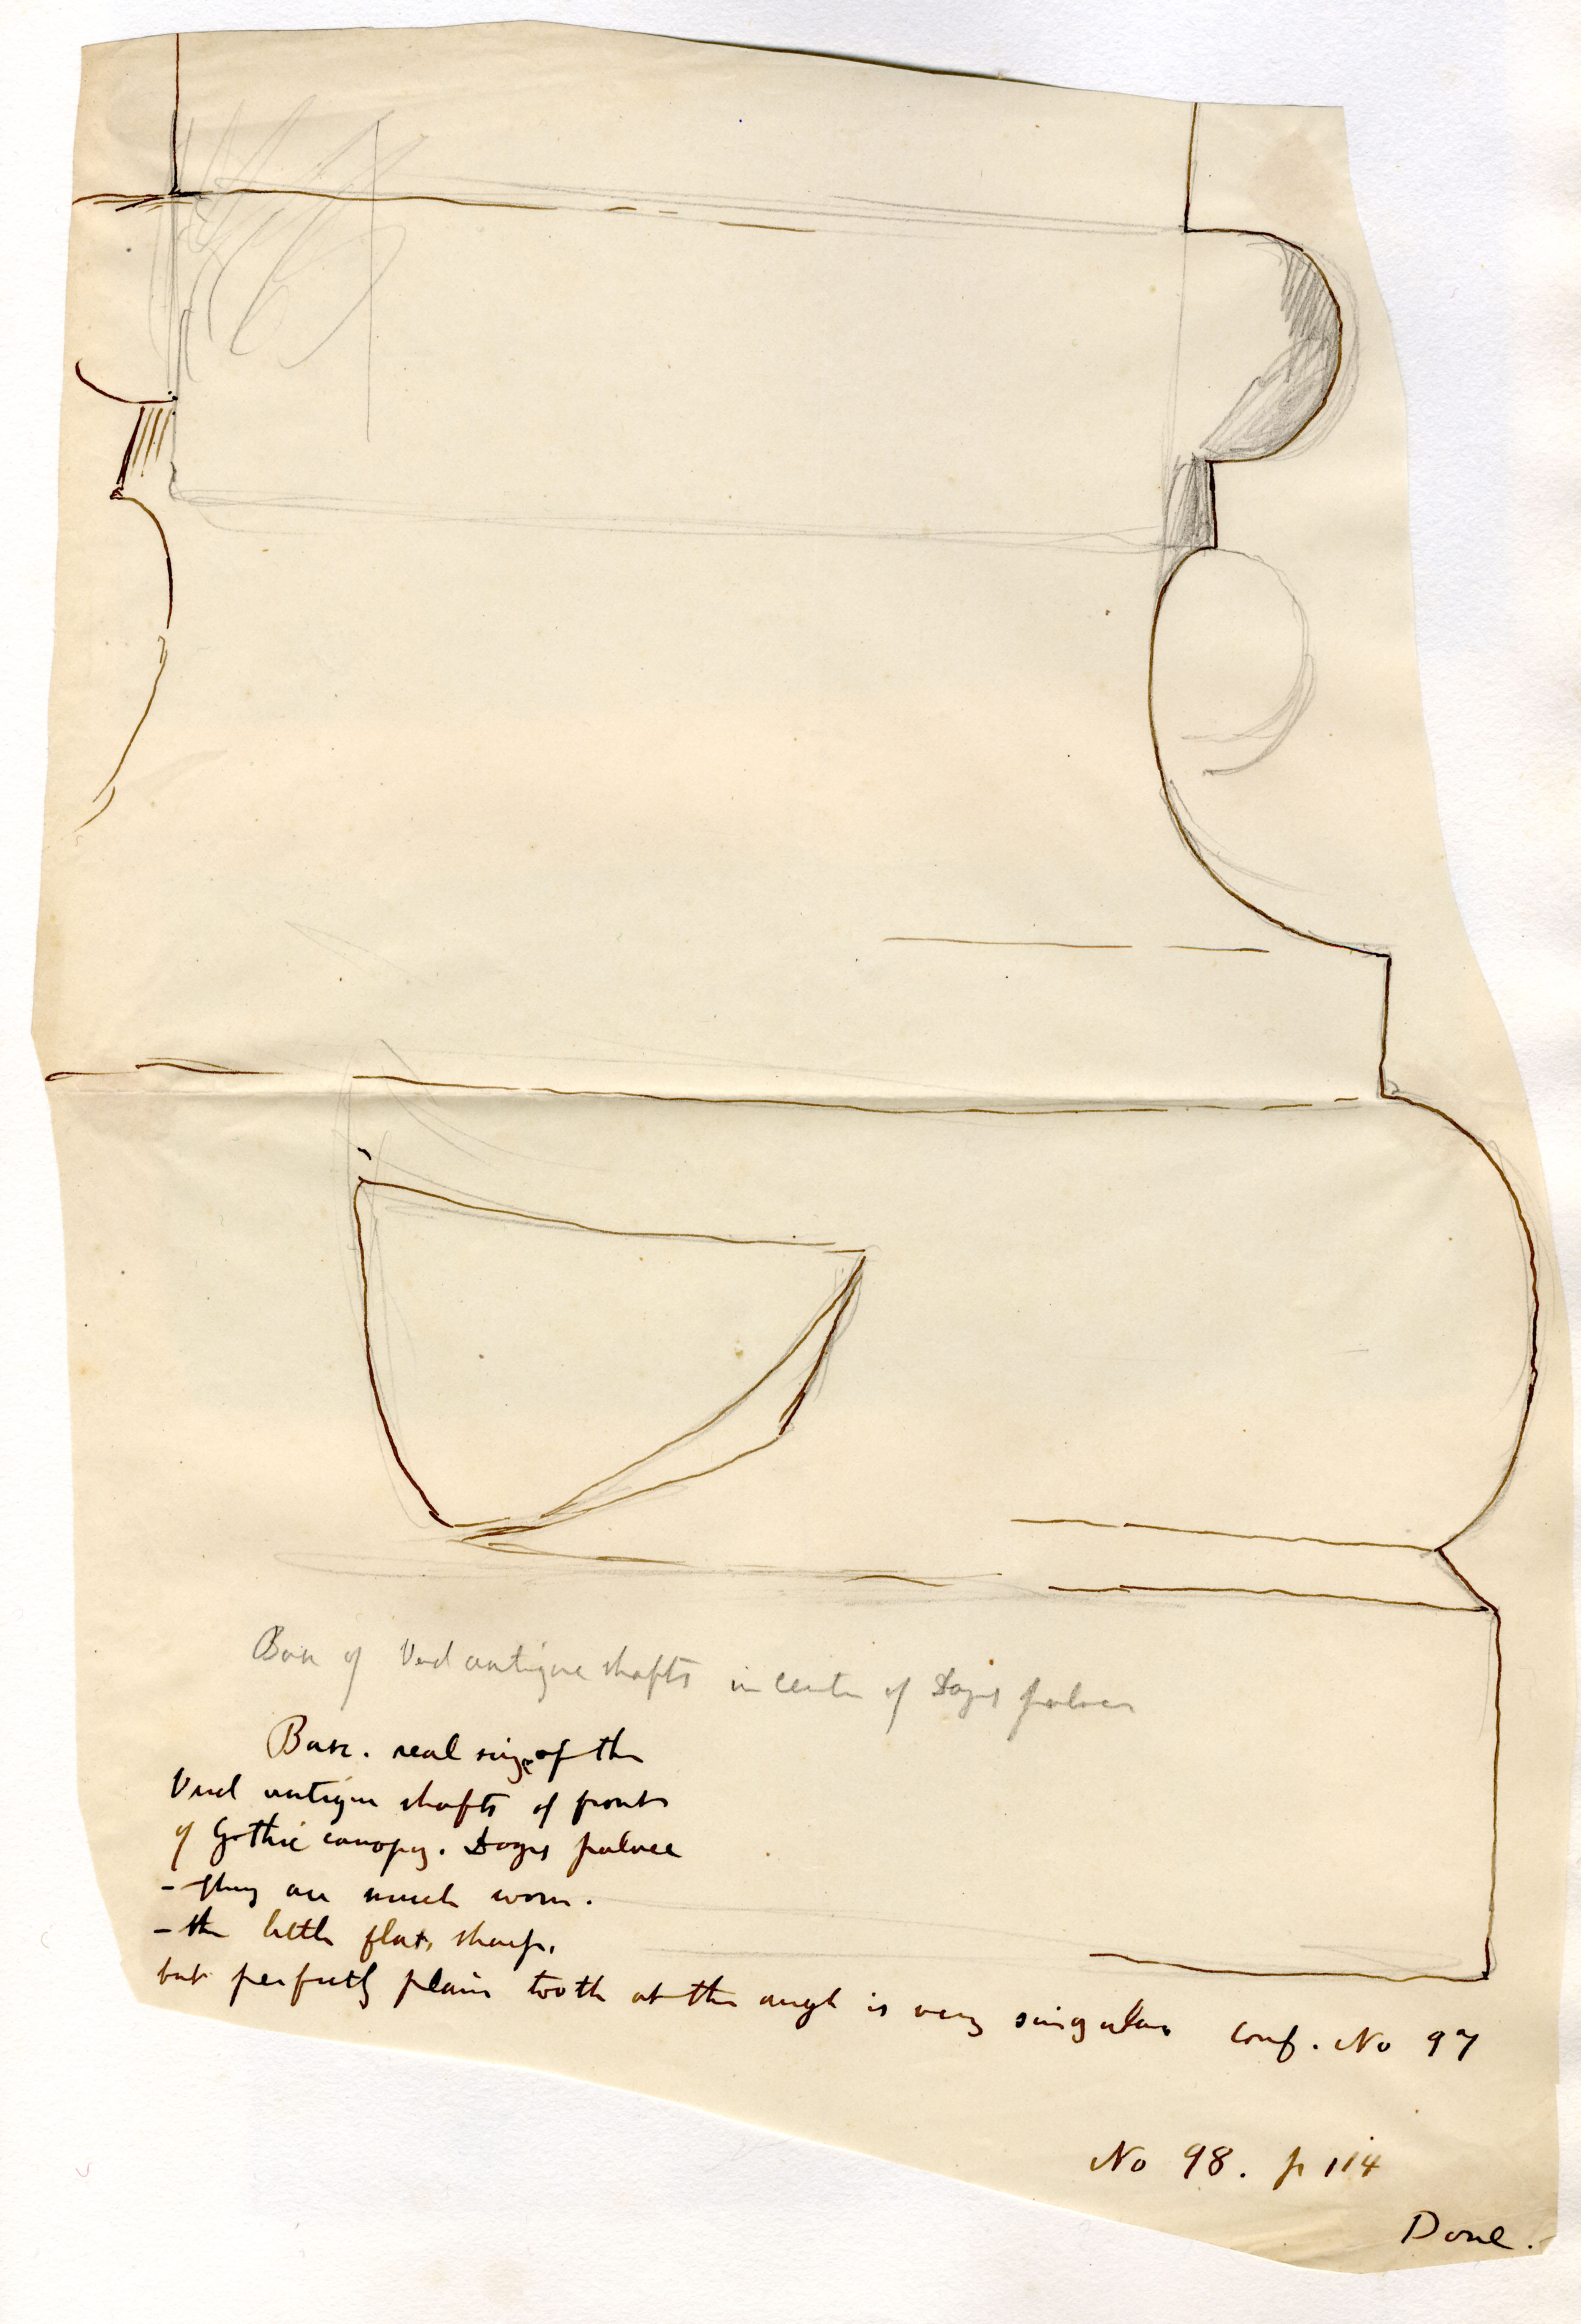 Base of Verd antique shafts in centre of Doges palace
Base. real size of the
Verd antique shafts of front
of Gothic canopy. Doges palace
- They are much worn.
- the little flat, sharp,
but perfectly plain tooth at the angle is very singular Conf. No 97
No 98. p 114
Done.